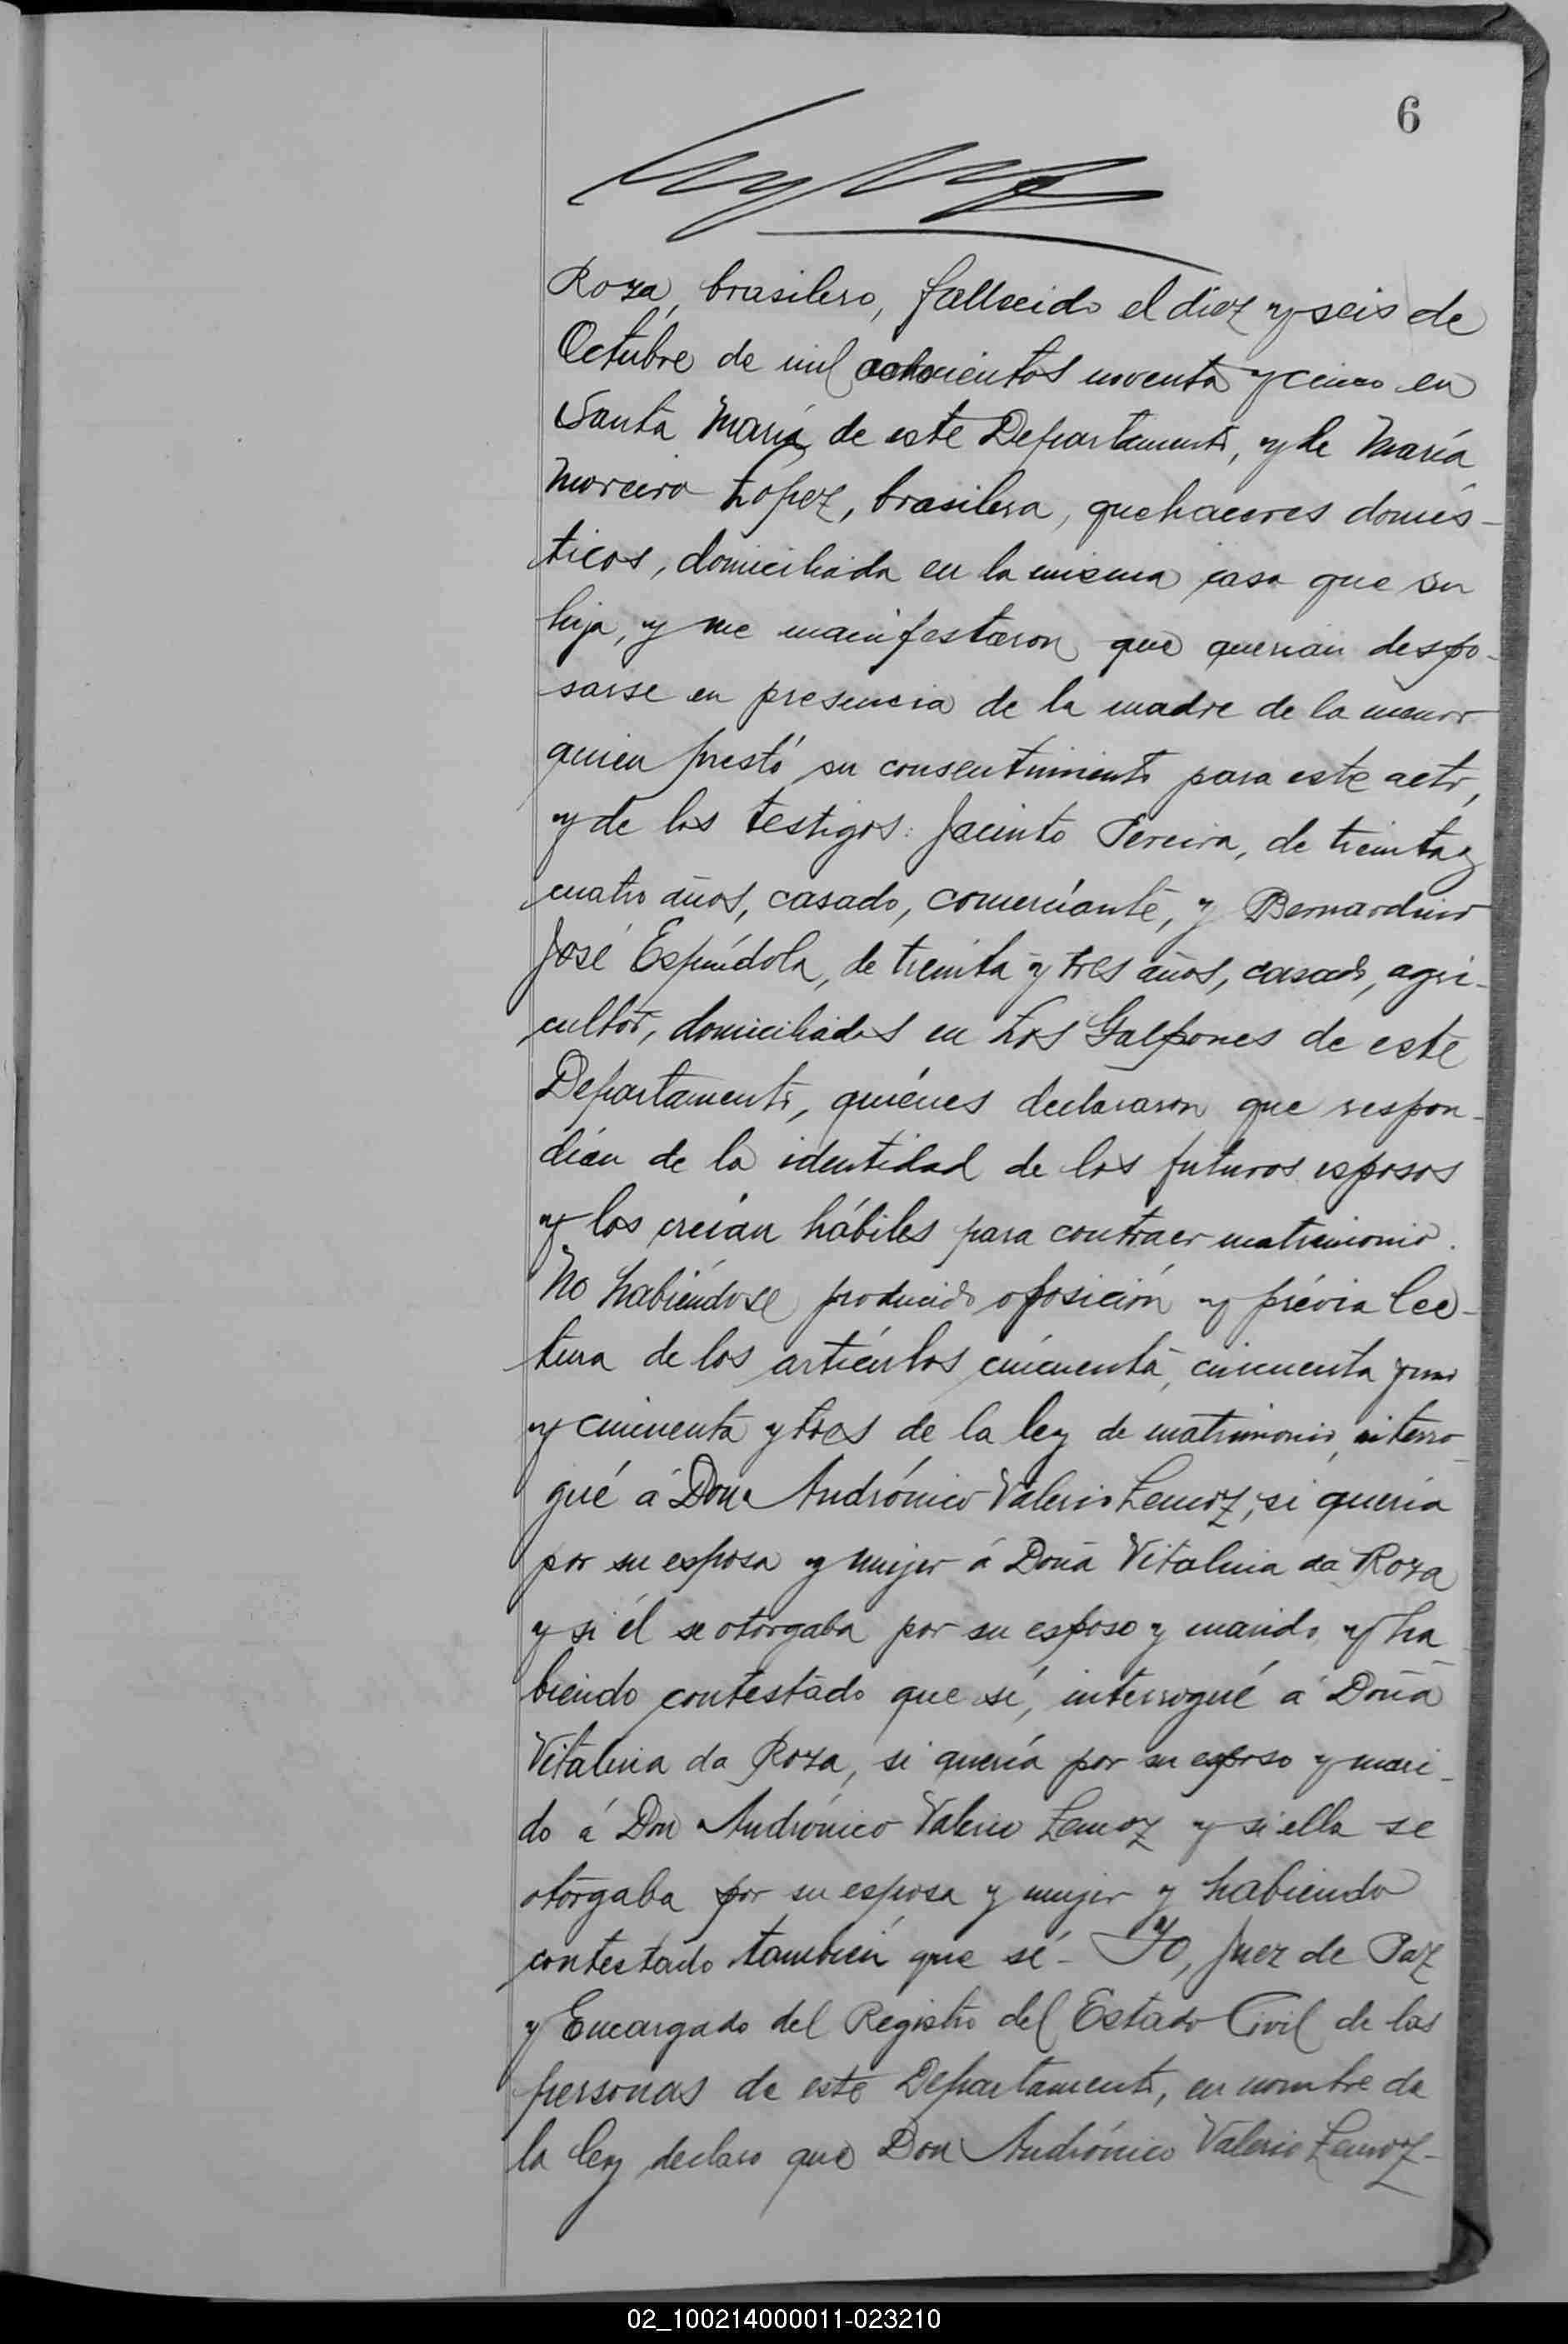 6
Roza, brasilero, fallecido el diez y seis de
Octubre de mil ochocientos noventa y cinco en
Santa María de este Departamento, y de María
Moreira López, brasilera, quehaceres domés-
ticos, domiciliada en la misma casa que su
hija, y me manifestaron que querian despo-
sarse en presencia de la madre de la menor
quien prestó su consentimiento para este acto,
y de los testigos: Jacinto Pereira, de treinta y
cuatro años, casado, comerciante, y Bernardino
José Espíndola, de treinta y tres años, casado, agri-
cultor, domiciliados en Los Galpones de este
Departamento, quiénes declararon que respon-
dían de la identidad de los futuros esposos
y los creían hábiles para contraer matrimonio.
No habiéndose producido oposición y prévia lec-
tura de los artículos cincuenta, cincuenta y uno
y cincuenta y tres de la ley de matrimonio, interro-
gué á Don Andrónico Valerio Lemoz, si quería
por su esposa y mujer á Doña Vitalina da Roza
y si él se otorgaba por su esposo y marido, y ha-
biendo contestado que sí, interrogué á Doña
Vitalina da Roza, si quería por su esposo y mari-
do á Don Andrónico Valerio Lemoz y si ella se
otorgaba por su esposa y mujer y habiendo
contestado también que sí - Yo, Juez de Paz
y Encargado del Registro del Estado Civil de las
personas de este Departamento, en nombre de
la ley declaro que Don Andrónico Valerio Lemoz-
02_100214000011-023210